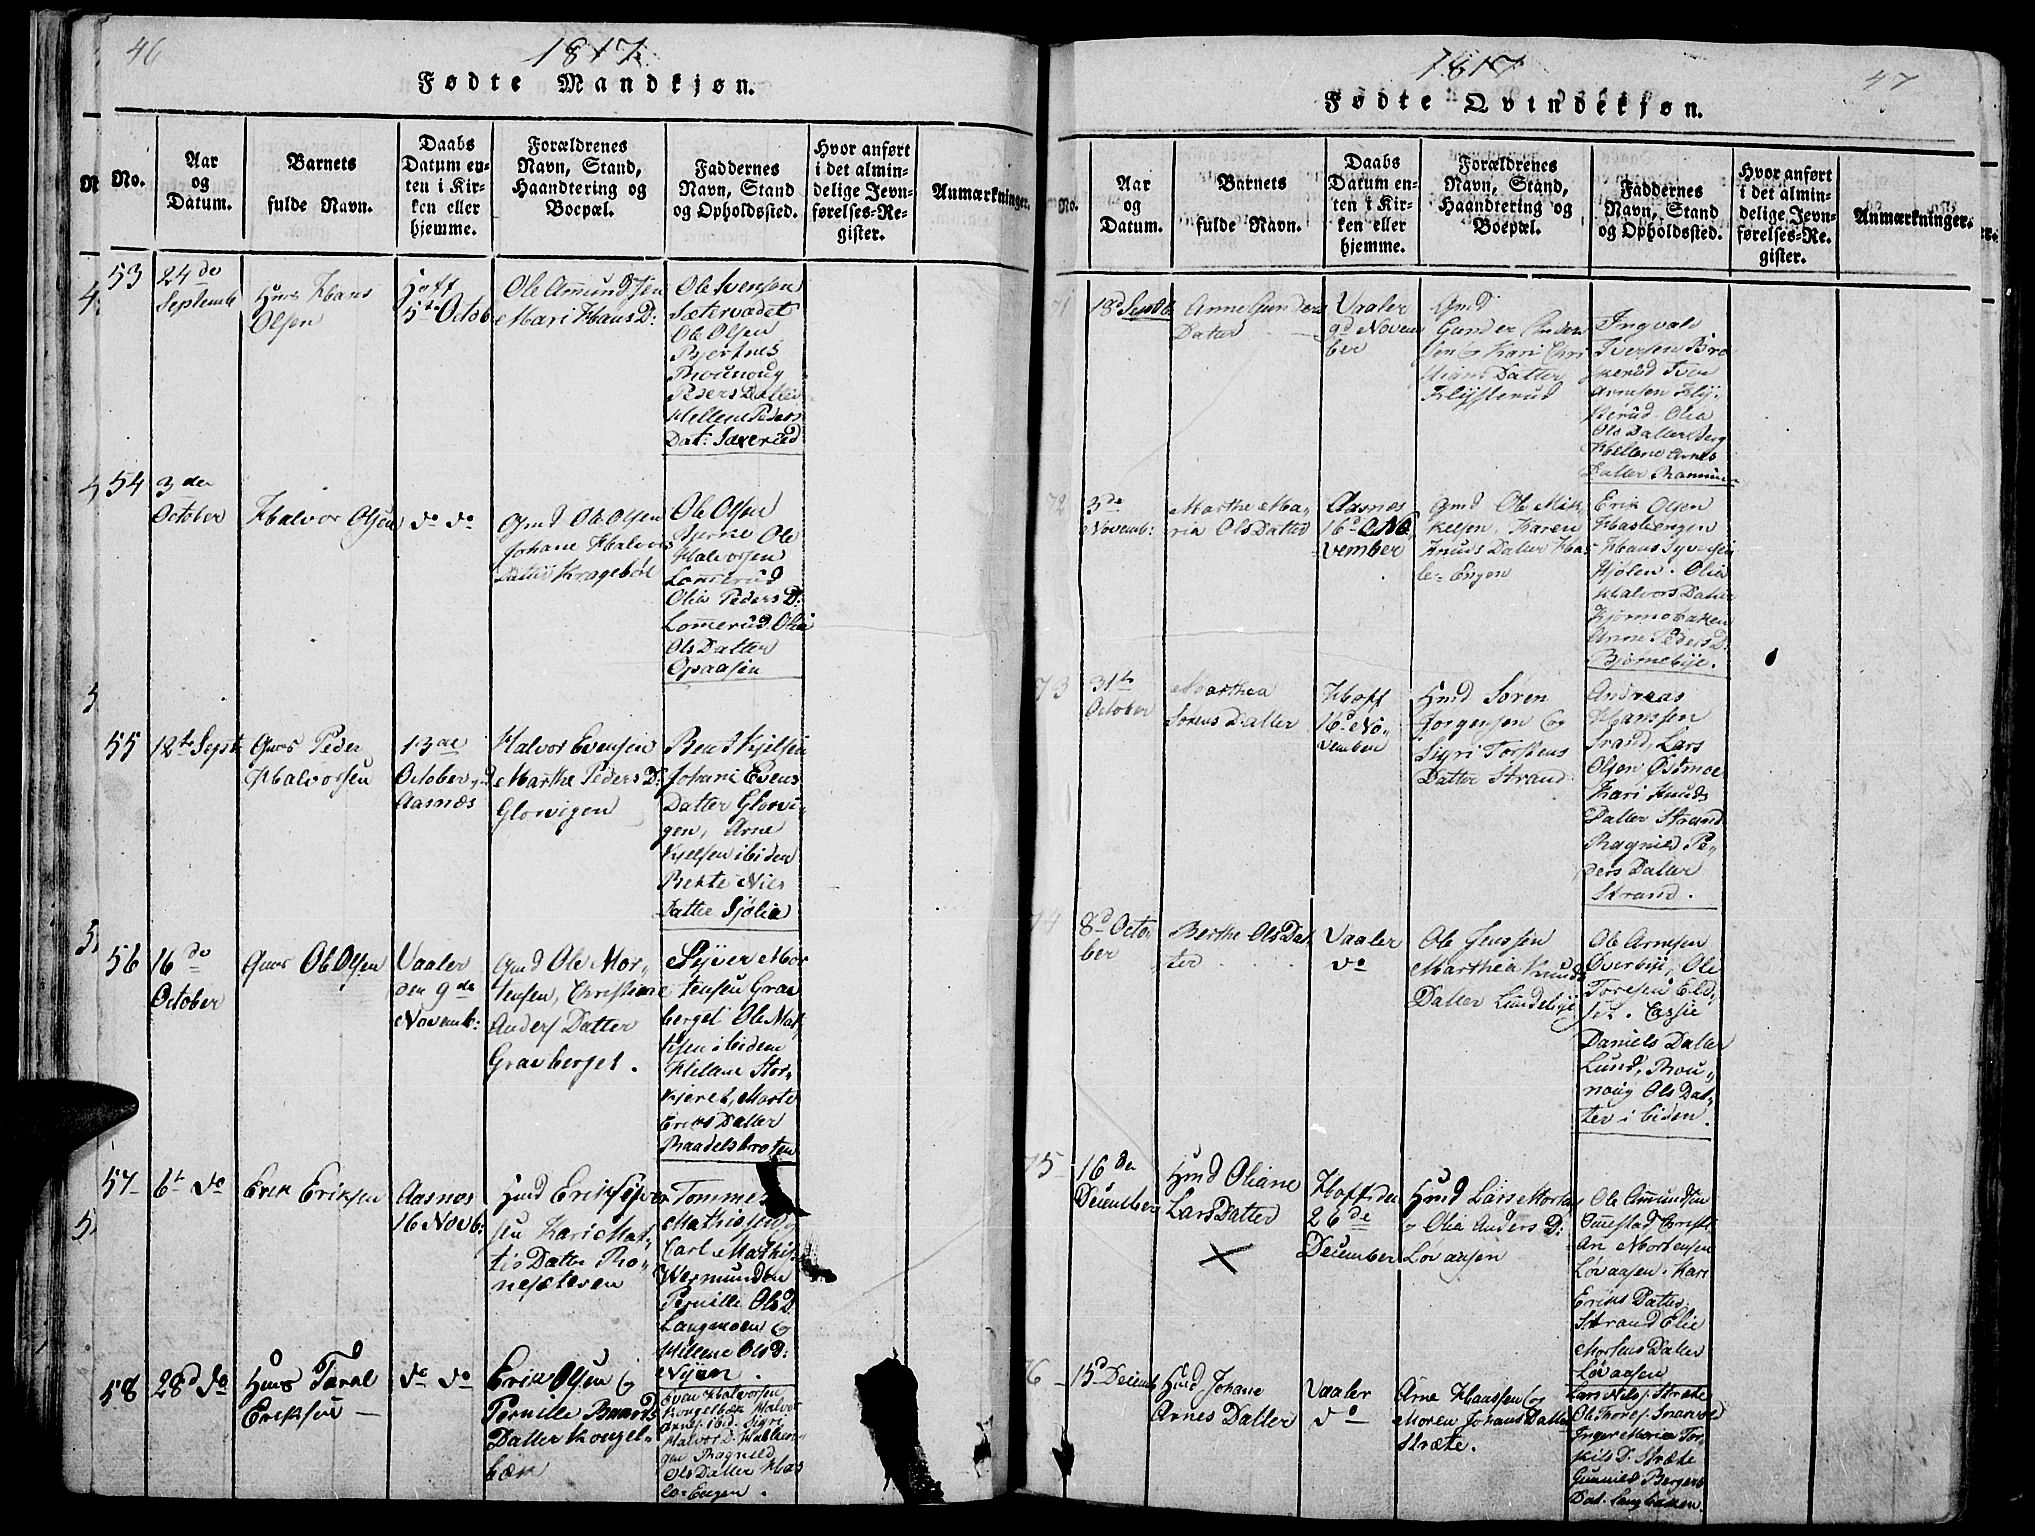 46
1817.
Fødte Mandkjøn.
No.
Aar
og
Datum.
Barnets
fulde Navn.
Daabs
Datum en-
ten i Kir-
ken eller
hjemme.
Forældrenes
Navn, Stand,
Haandtering og
Boepæl.
Faddernes
Navn, Stand
og Opholdssted.
Hvor anført
i det almin-
delige Jevn-
førelses-Re-
gister.
Anmærkninger.
53
24de
Septemb
Hans
Olsen
Hoff
5te Octob
Ole Amundsen
Mari Hans D:
Ole Svensen
Sætervadet
Ole Olsen
Bjerknes
Rounoug
Peders Datter
Hellene Peders
Dat: Saxerud
54
3de
October
Halvor Olsen
do do
Gmd Ole Olsen
Johane Halvors
Datter Kragebøl
Ole Olsen
Bjerke Ole
Halvorsen
Lommerud
Olia Peders D:
Lommerud Olia
Ols Datter
Opaasen
55
12te Sept
Peder
Halvorsen
13de
October
Aasnæs
Halvor Evensen
Marthe Peders D:
Glorvigen
Bent Kjelsen
Johane Evens
Datter Glorvi-
gen, Arne
Kjelsen ibiden
Berte Nils
Datter Sjølia
56
16de
October
Ole Olsen
Vaaler
den 9de
Novemb:
Gmd Ole Mor-
tensen, Christiane
Anders Datter
Gravberget.
Syver Mor
tensen Grav
berget Ole Mat
isen ibidem
Hellene Stor-
kjeret, Marte
Eriks Datter
Raadelsbroten
57
6te do
Erik Eriksen
Aasnes
16 Novb:
Hmd Erik Syver
sen Kari Mat-
tis Datter Ro-
nesæteren
Tommes
Mathissen
Carl Mathis
Wermunden
Pernille Ols D
Langmoen og
Hellene Ols D:
Nyen.
58
28d do
Taral
Eriksen
do do
Erik Olsen og
Pernille
Datter Kongel-
bæk
Even Halvorsen
Kongelbæk Halvor
ibid. Sigri
Halvors D.
gen Ragnild
Ols Datter Has
le-Engen.
1817
47
Fødte Qvindekjøn.
No.
Aar
og
Datum.
Barnets
fulde Navn.
Daabs
Datum en-
ten i Kir-
ken eller
hjemme.
Forældrenes
Navn, Stand,
Haandtering og
Boepæl.
Faddernes
Navn, Stand
og Opholdssted.
Hvor anført
i det almin-
delige Jevn-
førelses-Re-
gister.
Anmærkninger.
71
18d Septb
Anne Gunders
Datter
Vaaler
9d Novem
ber
Gmd
Gunder Anders
sen & Kari Chri
stians Datter
Klysterud
Ingvald
Iversen Bra
skerud Iver
Arnesen Kly-
sterud. Olia
Ols Datter Berg
Hellene Arnes
Datter
72
3de
Novemb:
Marthe Ma-
ria Ols Datter
Aasnes
16d No
vember
Gmd Ole Mik-
kelsen, Karen
Knuds Datter Has-
le-Engen
Erik Olsen
Hasleengen
Hans Syversen
Kjølen. Olia
Halvors Datter
Kjernsbakken
Anne Peders D:
Bjørnebye.
73
31te
October
Marthea
Sørens Datter
Hoff
16d No-
vember
Hmd Søren
Jørgensen og
Sigri Torstens
Datter Strand
Andreas
Hanssen
Strand, Lars
Olsen Østmoe
Kari Knuds
Datter Strand
Ragnild Pe-
ders Datter
Strand.
74
8d Octo
ber
Berthe Ols Dat
ter
Vaaler
do
Ole Jenssen
Marthea Knuds
Datter Lundebye
Ole Arnesen
Overbye, Ole
Toresen
Daniels Datter
Lund, Rou-
noug Ols Dat-
ter ibiden.
75
16de
December
Hmd Oliane
Lars Datter
Hoff den
26de
December
Hmd Lars Morten
& Olia Anders D:
Lovaasen
Ole Amundsen
Christi
an Mortensen
Lovaasen. Kari
Eriks Datter
Strand Elie
Mortens Datter
Lovaasen
76
15d Decemb
Hmd Johane
Arnes Datter
Vaaler
do
Arne Haassen og
Maren Johans Datter
Stræte.
Lars Nils. Stræte
Ole Thores.
Inger Maria Tor-
kils D. Stræte
Gunnild Bergers
Dat.